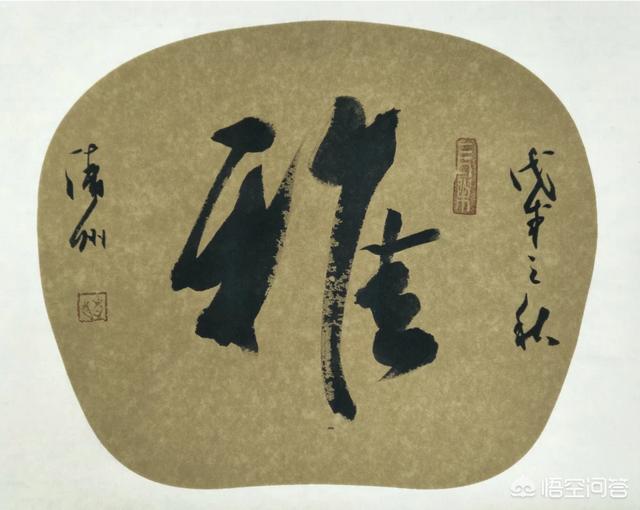 戊戌之秋
雅
清州
悟空问答